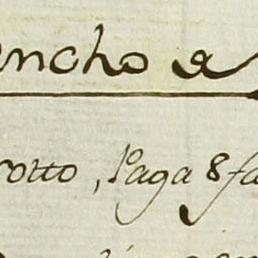 encho a
rotto, Paga 8 fa